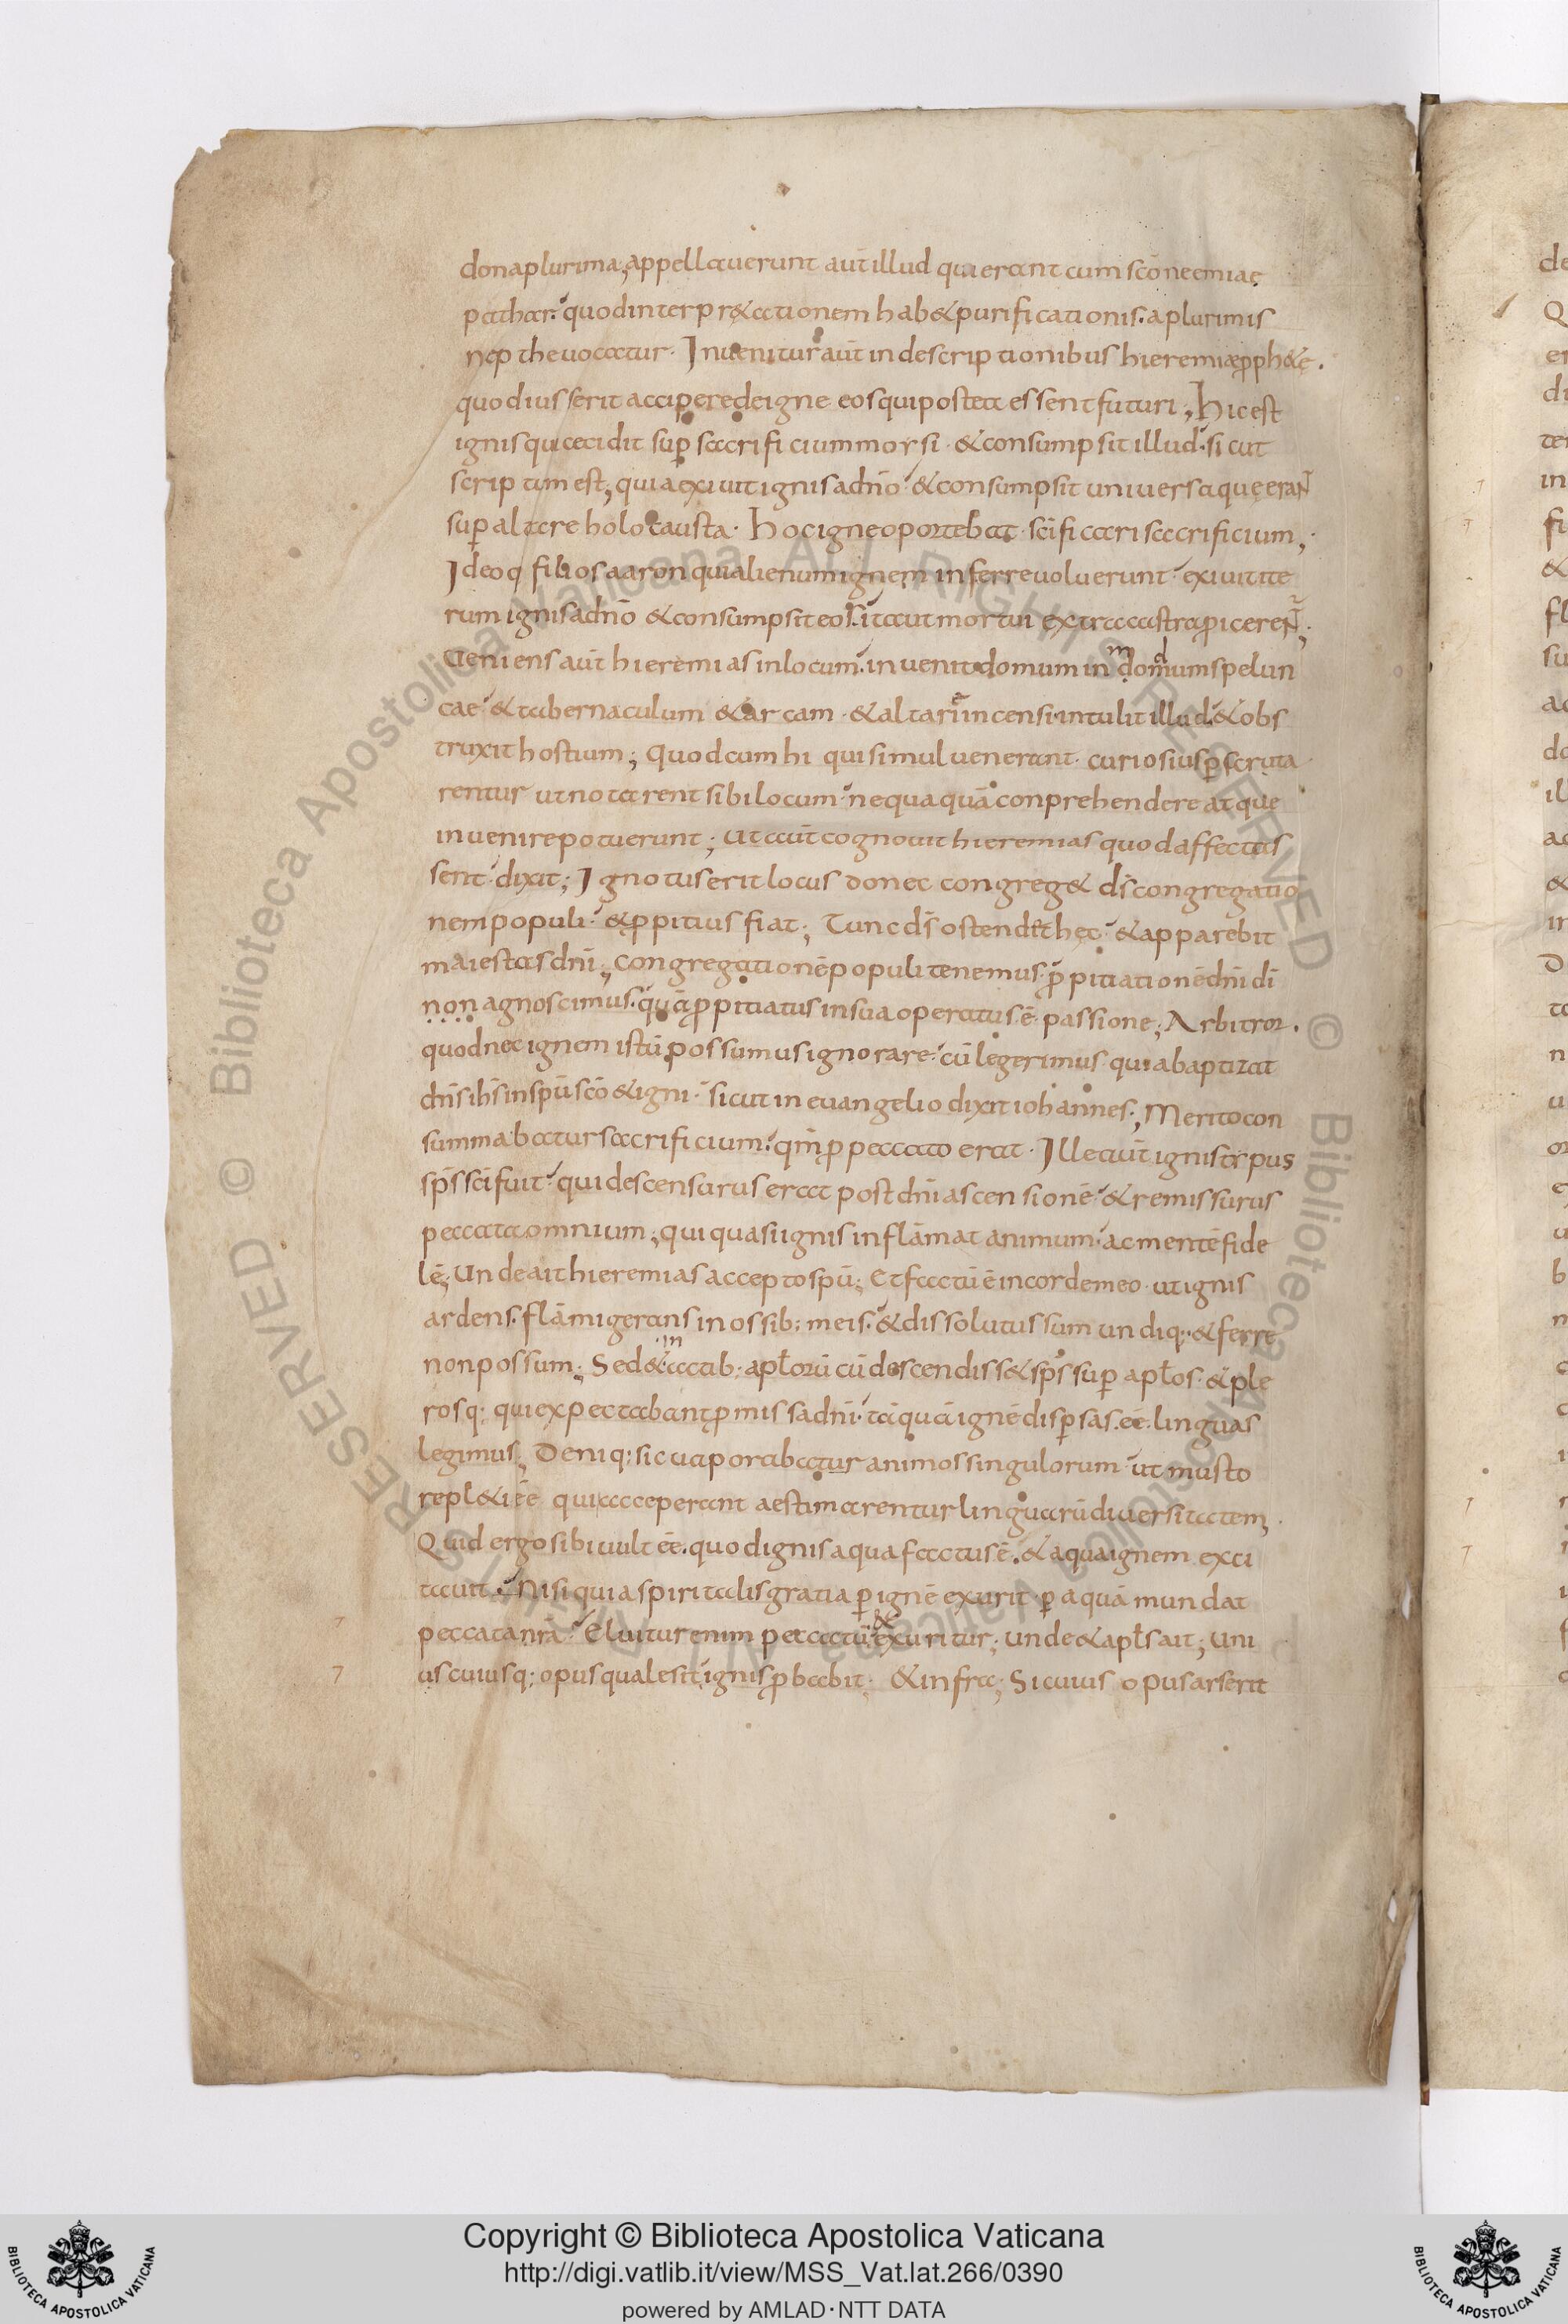 dona plurima; appellauerunt aūt illud qui erant cum scō neemiae
pathar. quod interpr&ationem hab& purificationis. a plurimis
nepthe uocatur. Inuenitur aūt in descriptionibus hieremiae pph&ę.
quod iusserit accipere de igne eos qui postea essent futuri; Hic est
ignis qui cecidit sup̄ sacrificium morsi. & consumpsit illud. sicut
scriptum est; quia exiuit ignis a dn̄o & consumpsit uniuersa quę eraN̄
sup̄ altare holocausta. Hoc igne oportebat sc̄ificari sacrificium;
Ideoq filios aaron qui alienum ignem inferre uoluerunt exiuit ite
rum ignis a dn̄o & consumpsit eos. ita ut mortui extra castra ꝓicereN̄;
Ueniens aūt hieremias in locum. inuenit domum in m domum d spelun
cae & tabernaculum & arcam. & altari e incensi. intulit illud. & obs
truxit hostium; Quod cum hi qui simul uenerant. curiosius ꝑscruta
rentur ut notarent sibi locum nequaquā conprehendere atque
inuenire potuerunt; Ut aūt cognouit hieremias quod affectas
sent dixit; Ignotus erit locus donec congreg& ds̄ congregatio
nem populi. & ꝓpitius fiat; Tunc ds̄ ostendet hęc & apparebit
maiestas dn̄i; Congregationē populi tenemus. ꝓpitiationē dn̄i dī
non agnoscimus. quā ꝓpitiatus in sua operatus ē passione; Arbitror.
quod nec ignem istū possumus ignorare. cū legerimus quia baptizat
dn̄s ih̄s in spū scō & igni. sicut in euangelio dixit iohannes; Merito con
summabatur sacrificium. qm̄ ꝓ peccato erat. Ille aūt ignis typus
sp̄s sc̄i fuit. qui descensurus erat post dn̄i ascensionē & remissurus
peccata omnium; qui quasi ignis inflāmat animum. ac mentē fide
lē; Unde ait hieremias accepto spū; Et factū ē in corde meo. ut ignis
ardens. flāmigerans in ossib; meis. & dissolutus sum undiq;. & ferre
non possum; Sed & in actib; apłorū cū descendiss& sp̄s sup̄ apłos. & ple
rosq; qui expectabant ꝓmissa dn̄i. tāquā ignē disp̄sas. eē. linguas
legimus; Deniq; sic uaporabatur animos singulorum ut musto
repl&i eē qui acceperant aestimarentur linguarū diuersitatem;
Quid ergo sibi uult eē. quod ignis aqua factus ē. & aqua ignem exci
tauit. Nisi quia spiritalis gratia ꝑ ignē exurit. ꝑ aquā mundat
peccata nr̄a. Eluitur enim peccatū & exuritur; unde & apłs ait; Uni
uscuiusq; opus quale sit ignis ꝓbabit; & infra; Si cuius opus arserit
de
Copyright © Biblioteca Apostolica Vaticana
http://digi.vatlib.it/view/MSS_Vat.lat.266/0390
powered by AMLAD·NTT DATA
BIBLIOTECA APOSTOLICA VATICANA
BIBLIOTECA APOSTOLICA VATICANA